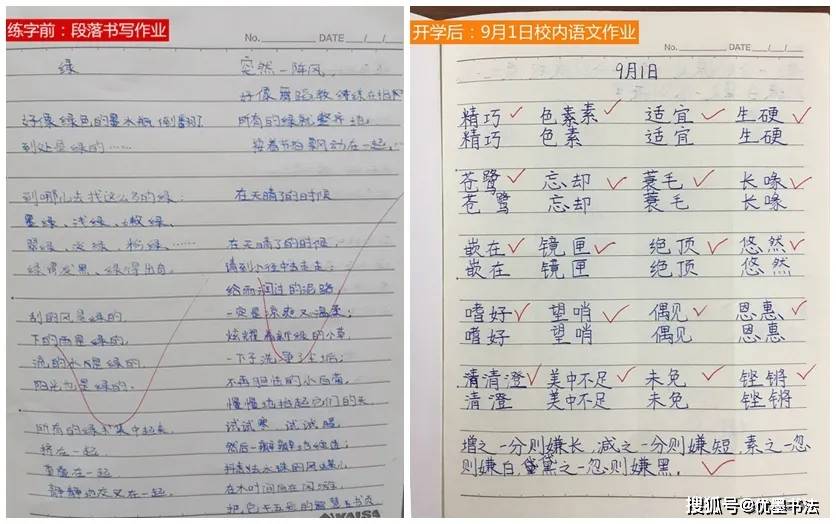 练字前：段落书写作业
No. DATE / /
绿
好像绿色的墨水瓶倒翻了
到处是绿的……
到哪儿去找这么多的绿：
墨绿、浅绿、嫩绿、
翠绿、淡绿、粉绿……
绿得发黑、绿得出奇。
刮的风是绿的，
下的雨是绿的，
流的水是绿的，
阳光也是绿的。
所有的绿集中起来，
挤在一起，
重叠在一起，
静静地交叉在一起。
突然一阵风，
好像舞蹈教练在指挥
所有的绿就整齐地
按着节拍飘动在一起……
在天晴了的时候
在天晴了的时候，
请到小径中去走走：
给雨润过的泥路，
一定是凉爽又温柔；
炫耀着新绿的小草，
一下子洗净了尘垢；
不再胆怯的小白菊，
慢慢地抬起它们的头，
试试寒，试试暖，
然后一瓣瓣地绽透；
抖去水珠的凤蝶儿
在木叶间自在闲游，
把它五彩的智慧书页
开学后：9月1日校内语文作业
No. DATE / /
9月1日
精巧 色素素 适宜 生硬
精巧 色素 适宜 生硬
苍鹭 忘却 蓑毛 长喙
苍鹭 忘却 蓑毛 长喙
嵌在 镜匣 绝顶 悠然
嵌在 镜匣 绝顶 悠然
嗜好 望哨 偶见 恩惠
嗜好 望哨 偶见 恩惠
清清澄 美中不足 未免 铿锵
清澄 美中不足 未免 铿锵
增之一分则嫌长，减之一分则嫌短，素之一忽
则嫌白，黛黛之一忽则嫌黑。
搜狐号@优墨书法